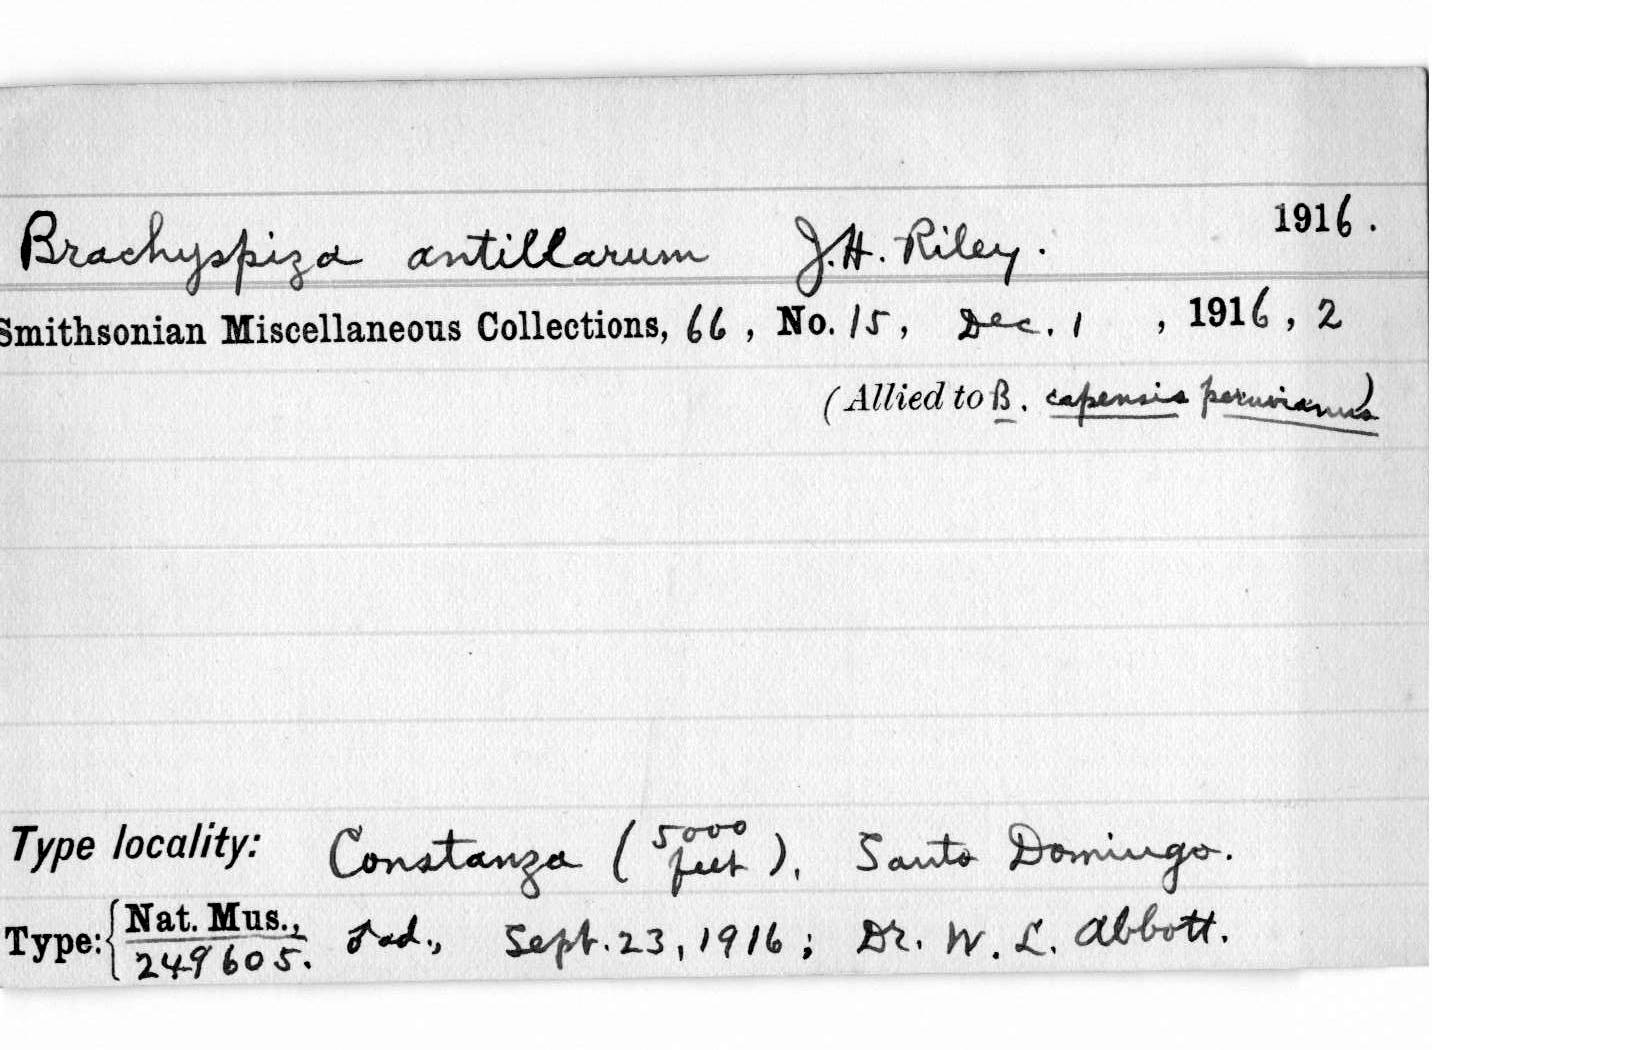 Brachyspiza antillarum J.H. Riley. 1916.
Smithsonian Miscellaneous Collections, 66, No. 15, Dec. 1, 1916, 2
(Allied to B. capensis peruvianus)
Type locality: Constanza (5000 feet), Santo Domingo.
Type: Nat. Mus., 249605. ♂ ad., Sept. 23, 1916; Dr. W. L. Abbott.